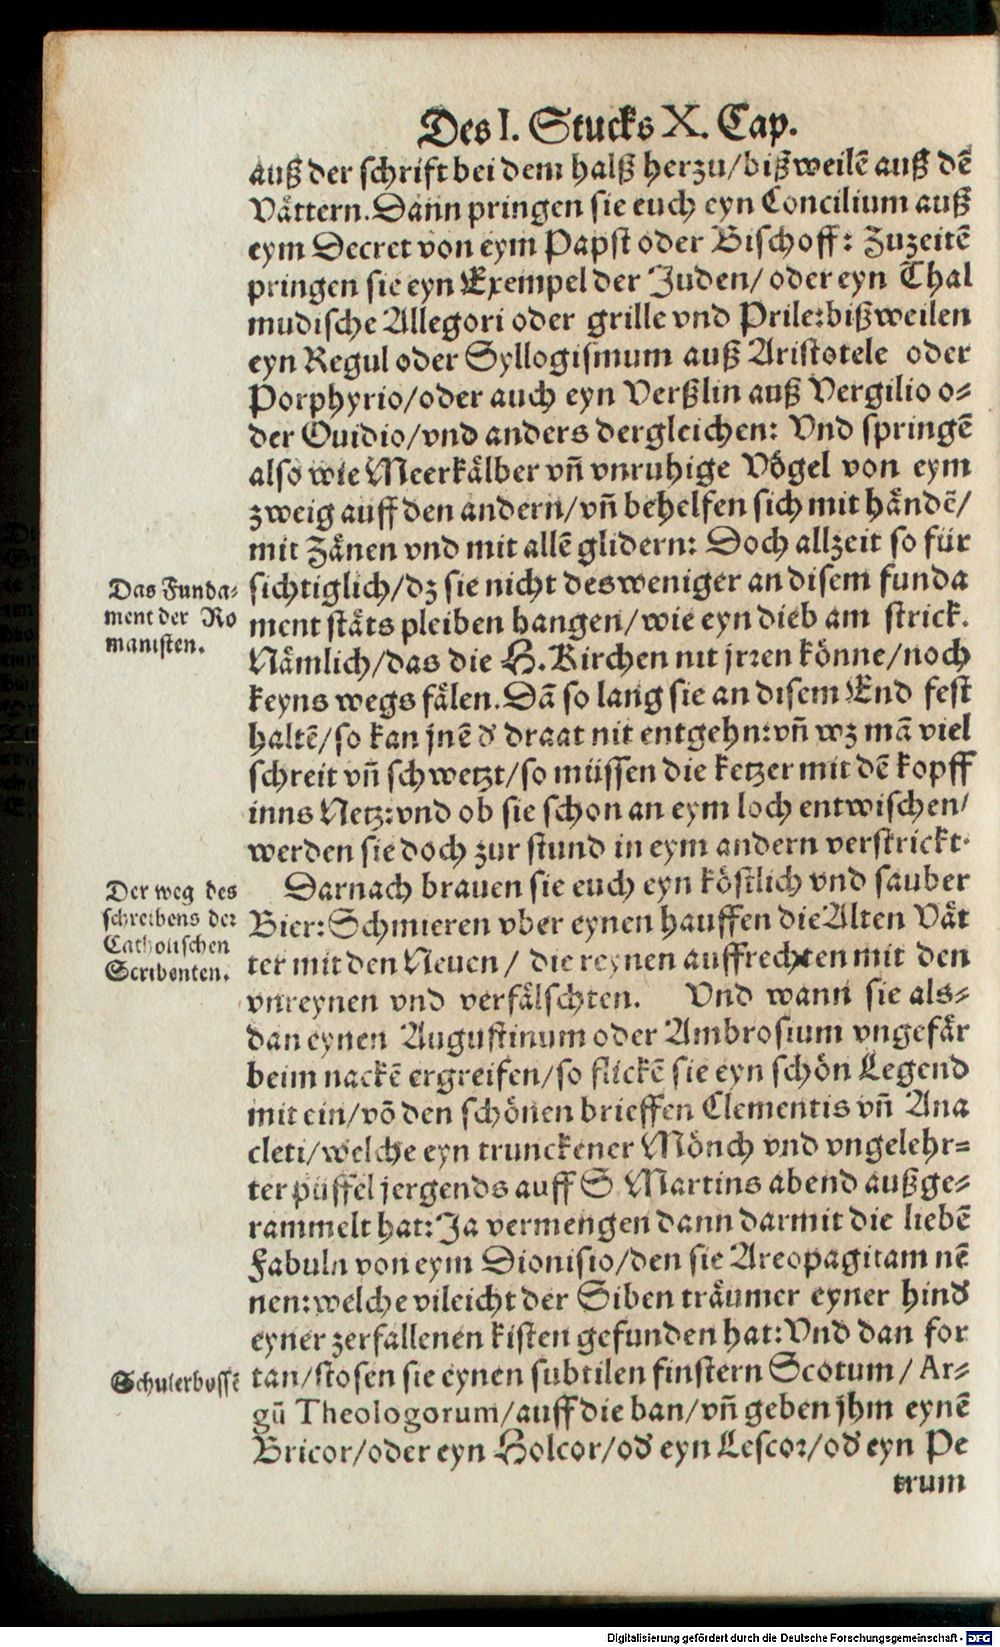 Des I. Stucks X. Cap.
auß der schrift bei dem halß herzu/bißweilẽ auß dẽ
Vättern. Dann pringen sie euch eyn Concilium auß
eym Decret von eym Papst oder Bischoff: Zuzeitẽ
pringen sie eyn Exempel der Juden/ oder eyn Thal
mudische Allegori oder grille vnd Prile: bißweilen
eyn Regul oder Syllogismum auß Aristotele oder
Porphyrio/oder auch eyn Verßlin auß Vergilio o-
der Ouidio/vnd anders dergleichen: Vnd springẽ
also wie Meerkälber vñ vnruhige Vögel von eym
zweig auff den andern/vñ behelfen sich mit händẽ/
mit Zänen vnd mit allẽ glidern: Doch allzeit so für
Das Funda-
ment der Ro
manisten.
sichtiglich/dz sie nicht desweniger an disem funda
ment stäts pleiben hangen/wie eyn dieb am strick.
Nämlich/das die H. Kirchen nit jrren könne/noch
keyns wegs fälen. Dã so lang sie an disem End fest
haltẽ/so kan jnẽ d' draat nit entgehn: vñ wz mã viel
schreit vñ schwetzt/so müssen die ketzer mit dẽ kopff
inns Netz: vnd ob sie schon an eym loch entwischen/
werden sie doch zur stund in eym andern verstrickt.
Der weg des
schreibens der
Catholischen
Scribenten.
Darnach brauen sie euch eyn köstlich vnd sauber
Bier: Schmieren vber eynen hauffen die Alten Vät
ter mit den Neuen / die reynen auffrechten mit den
vnreynen vnd verfälschten. Vnd wann sie als-
dan eynen Augustinum oder Ambrosium vngefär
beim nackẽ ergreifen/so flickẽ sie eyn schön Legend
mit ein/võ den schönen brieffen Clementis vñ Ana
cleti/welche eyn trunckener Mönch vnd vngelehr-
ter püffel jergends auff S. Martins abend außge-
rammelt hat: Ja vermengen dann darmit die liebẽ
Fabuln von eym Dionisio/den sie Areopagitam nẽ
nen: welche vileicht der Siben träumer eyner hind'
eyner zerfallenen kisten gefunden hat: Vnd dan for
Schulerbossẽ
tan/stosen sie eynen subtilen finstern Scotum / Ar-
gũ Theologorum/auff die ban/vñ geben jhm eynẽ
Bricor/oder eyn Holcor/od' eyn Lescor/od' eyn Pe
trum
Digitalisierung gefördert durch die Deutsche Forschungsgemeinschaft - DFG